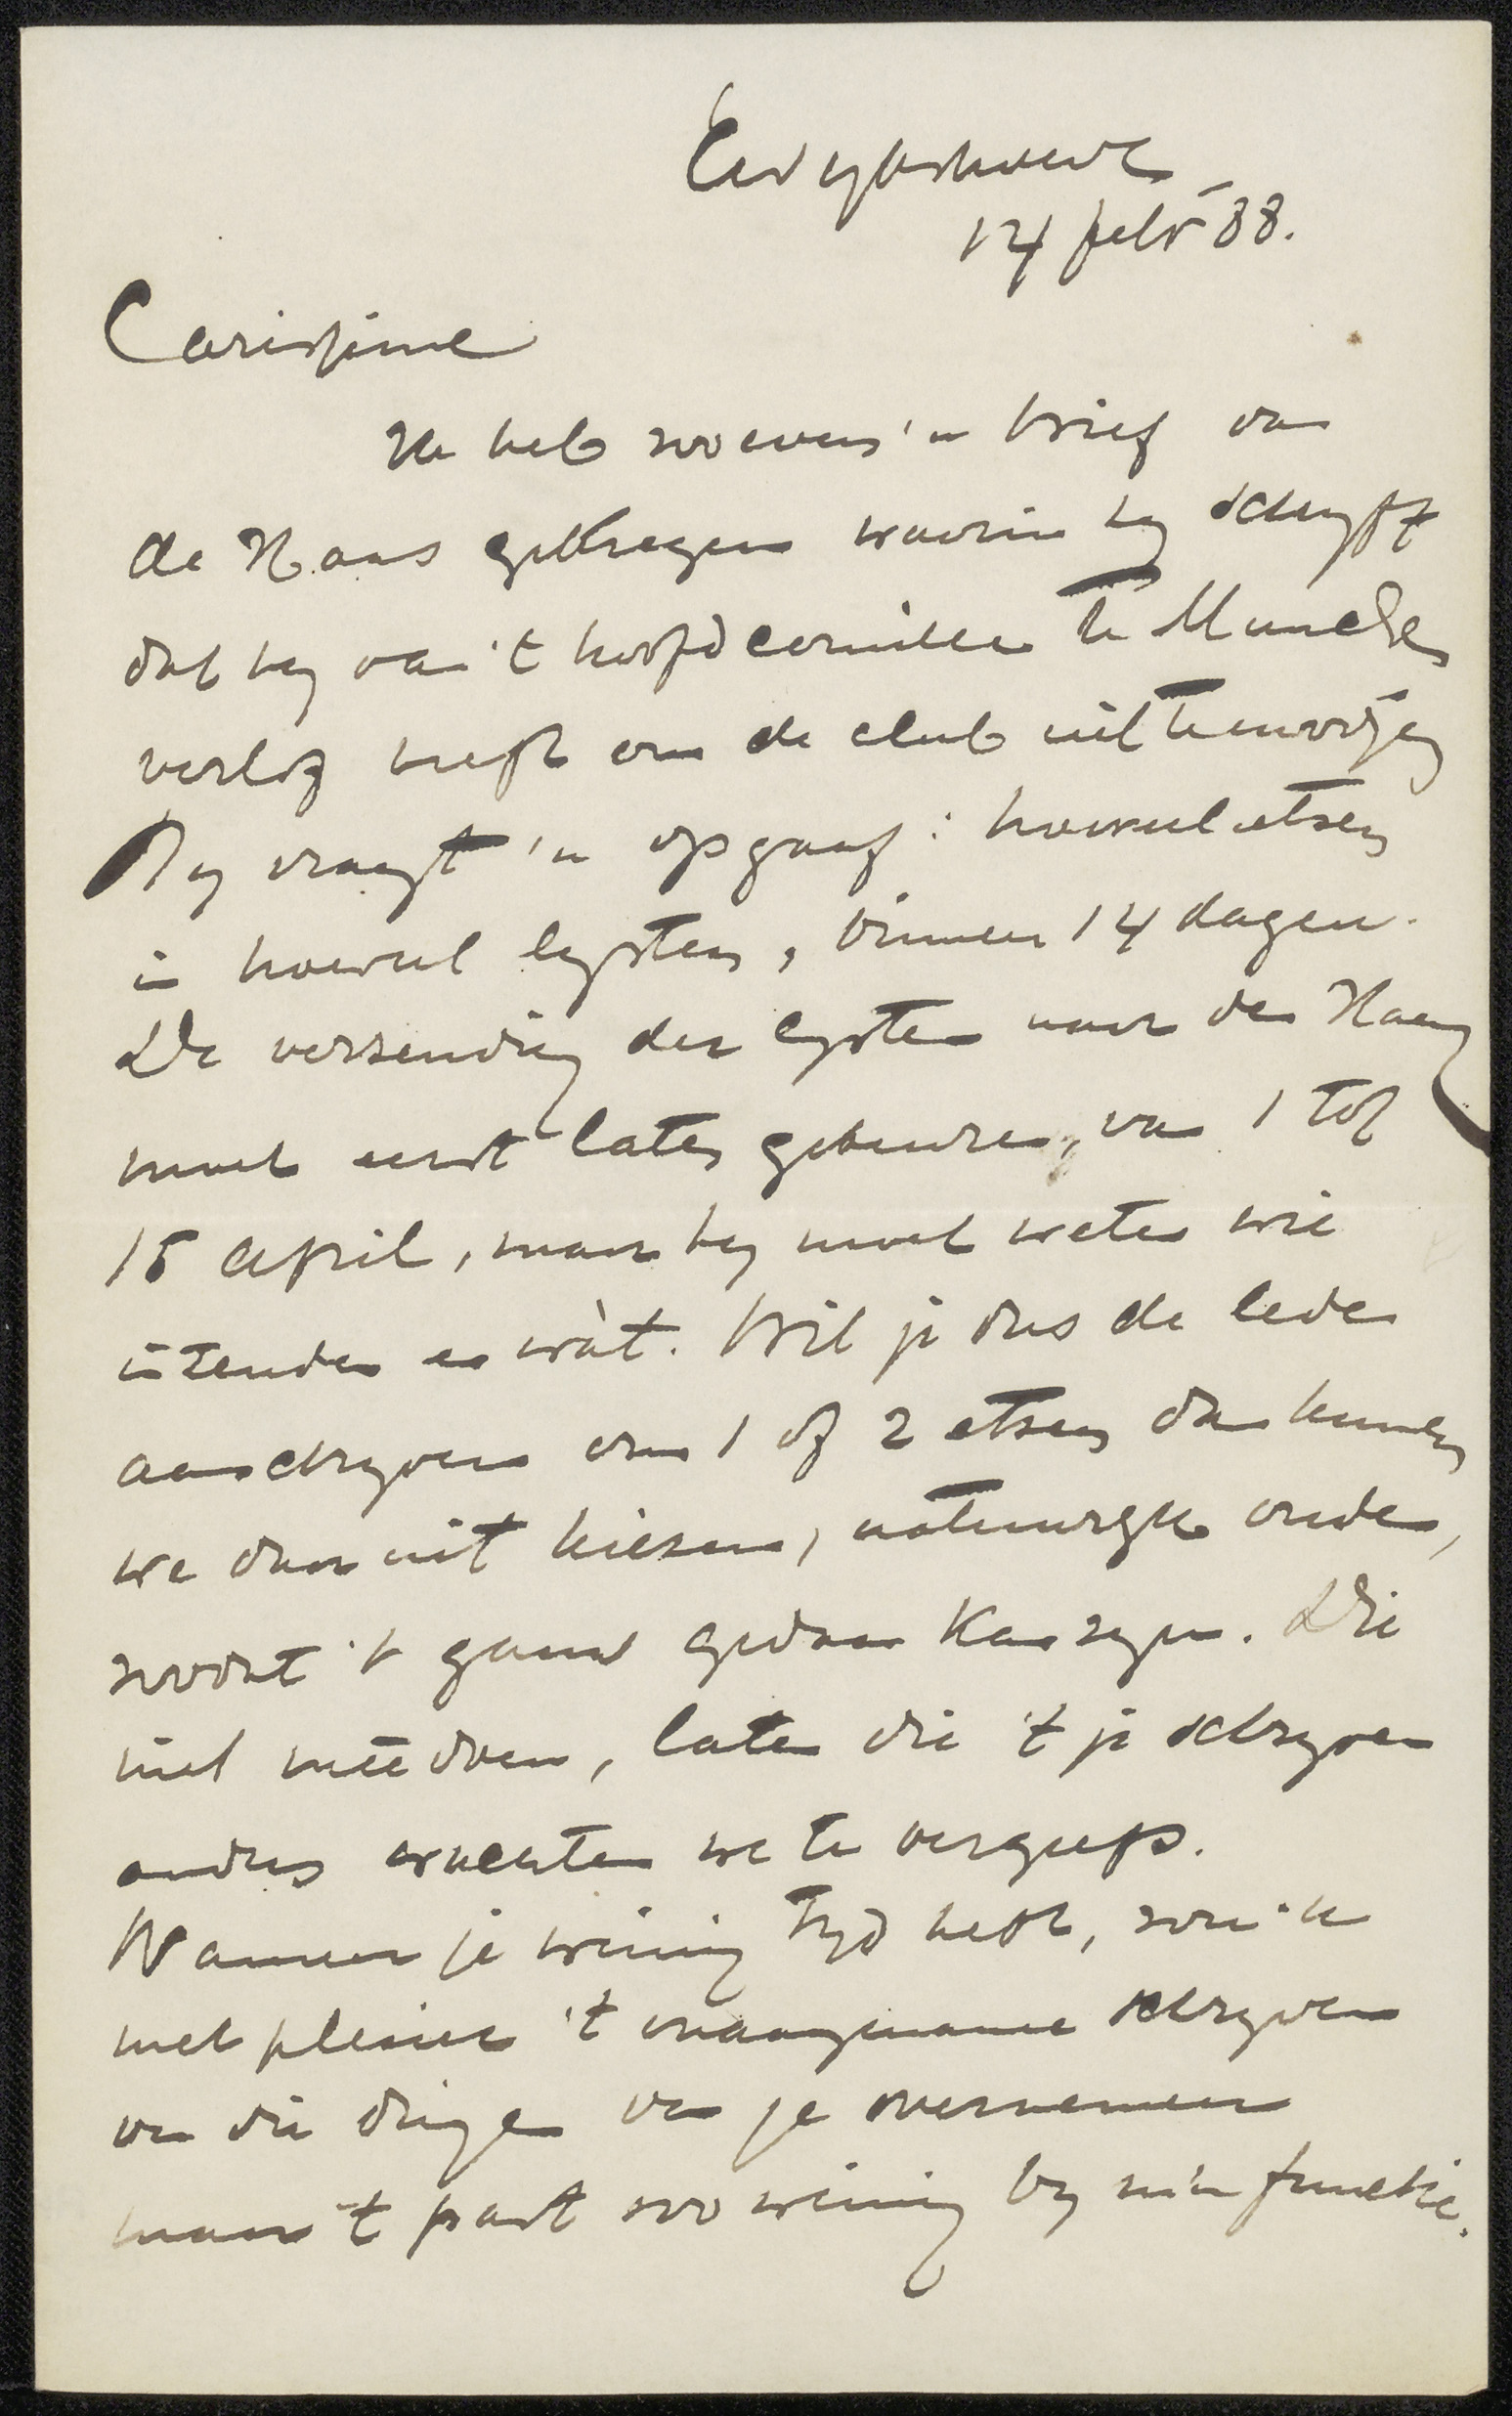 14 febr 88.
Carissime
Ik heb zooeven 'n brief van
de Haas gekregen waarin hy schryft
dat hy van 't hoofdcomitee te Munchen
verlof heeft om de club uit te noodigen
Hy vraagt 'n opgaaf: hoeveel etsen
in hoeveel lysten, binnen 14 dagen.
De verzending der lysten naar den Haag
moet eerst later gebeuren, van 1 tot
15 April, maar hy moet weten wie
inzenden en wàt. Wil je dus de leden
aanschryven om 1 of 2 etsen dan kunnen
we daar uit kiezen, natuurlyk oude,
zoodat 't gauw gedaan kan zyn. Die
niet meêdoen, laten die 't je schryven
anders wachten we te vergeefs.
Wanneer je weinig tyd hebt, zou ik
met plesier 't onaangename schryven
van die dingen van je overnemen
maar 't past zoo weinig by m'n functie.